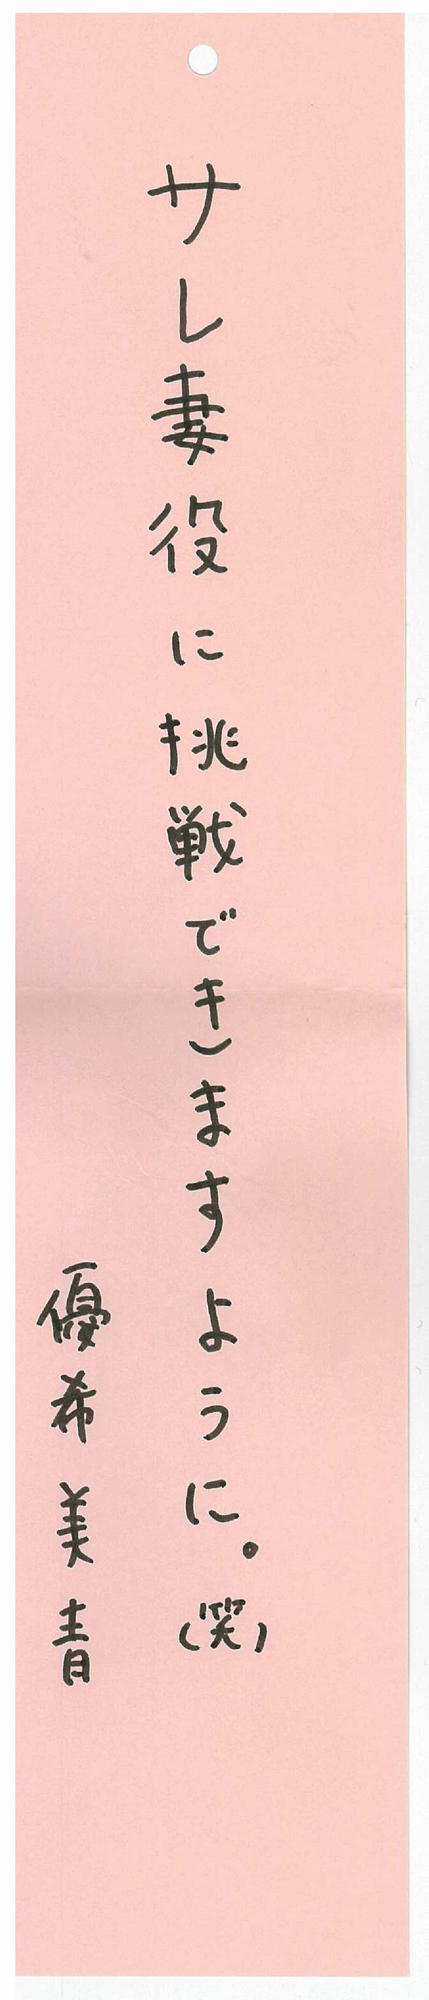 サレ妻役に挑戦できますように。(笑)
優希美青